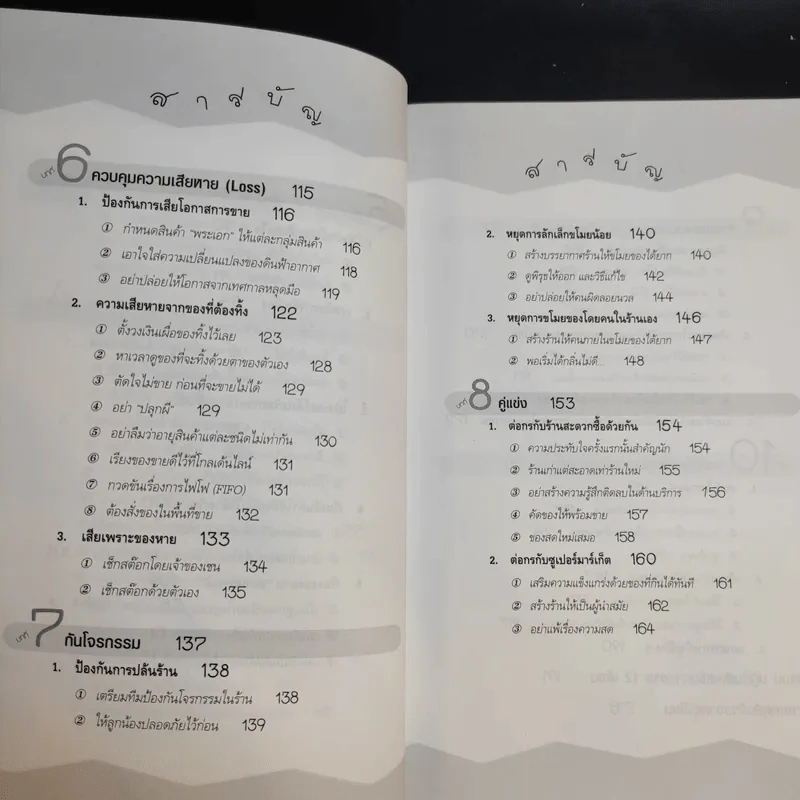 สารบัญ
บทที่ 6 ควบคุมความเสียหาย (Loss) 115
1. ป้องกันการเสียโอกาสการขาย 116
① กำหนดสินค้า "พระเอก" ให้แต่ละกลุ่มสินค้า 116
② เอาใจใส่ความเปลี่ยนแปลงของดินฟ้าอากาศ 118
③ อย่าปล่อยให้โอกาสจากเทศกาลหลุดมือ 119
2. ความเสียหายจากของที่ต้องทิ้ง 122
① ตั้งวงเงินเผื่อของทิ้งไว้เลย 123
② หาเวลาดูของที่จะทิ้งด้วยตาของตัวเอง 128
③ ตัดใจไม่ขาย ก่อนที่จะขายไม่ได้ 129
④ อย่า "ปลุกผี" 129
⑤ อย่าลืมว่าอายุสินค้าแต่ละชนิดไม่เท่ากัน 130
⑥ เรียงของขายดีไว้ที่โกลเด้นไลน์ 131
⑦ กวดขันเรื่องการไฟโฟ (FIFO) 131
⑧ ต้องสั่งของในพื้นที่ขาย 132
3. เสียเพราะของหาย 133
① เช็กสต๊อกโดยเจ้าของเชน 134
② เช็กสต๊อกด้วยตัวเอง 135
บทที่ 7 กันโจรกรรม 137
1. ป้องกันการปล้นร้าน 138
① เตรียมทีมป้องกันโจรกรรมในร้าน 138
② ให้ลูกน้องปลอดภัยไว้ก่อน 139
สารบัญ
2. หยุดการลักเล็กขโมยน้อย 140
① สร้างบรรยากาศร้านให้ขโมยของได้ยาก 140
② ดูพิรุธให้ออก และวิธีแก้ไข 142
③ อย่าปล่อยให้คนผิดลอยนวล 144
3. หยุดการขโมยของโดยคนในร้านเอง 146
① สร้างร้านให้คนภายในขโมยของได้ยาก 147
② พอเริ่มได้กลิ่นไม่ดี... 148
บทที่ 8 คู่แข่ง 153
1. ต่อกรกับร้านสะดวกซื้อด้วยกัน 154
① ความประทับใจครั้งแรกนั้นสำคัญนัก 154
② ร้านเก่าแต่สะอาดเท่าร้านใหม่ 155
③ อย่าสร้างความรู้สึกติดลบในด้านบริการ 156
④ คัดของให้พร้อมขาย 157
⑤ ของสดใหม่เสมอ 158
2. ต่อกรกับซูเปอร์มาร์เก็ต 160
① เสริมความแข็งแกร่งด้วยของที่กินได้ทันที 161
② สร้างร้านให้เป็นผู้นำสมัย 162
③ อย่าแพ้เรื่องความสด 164